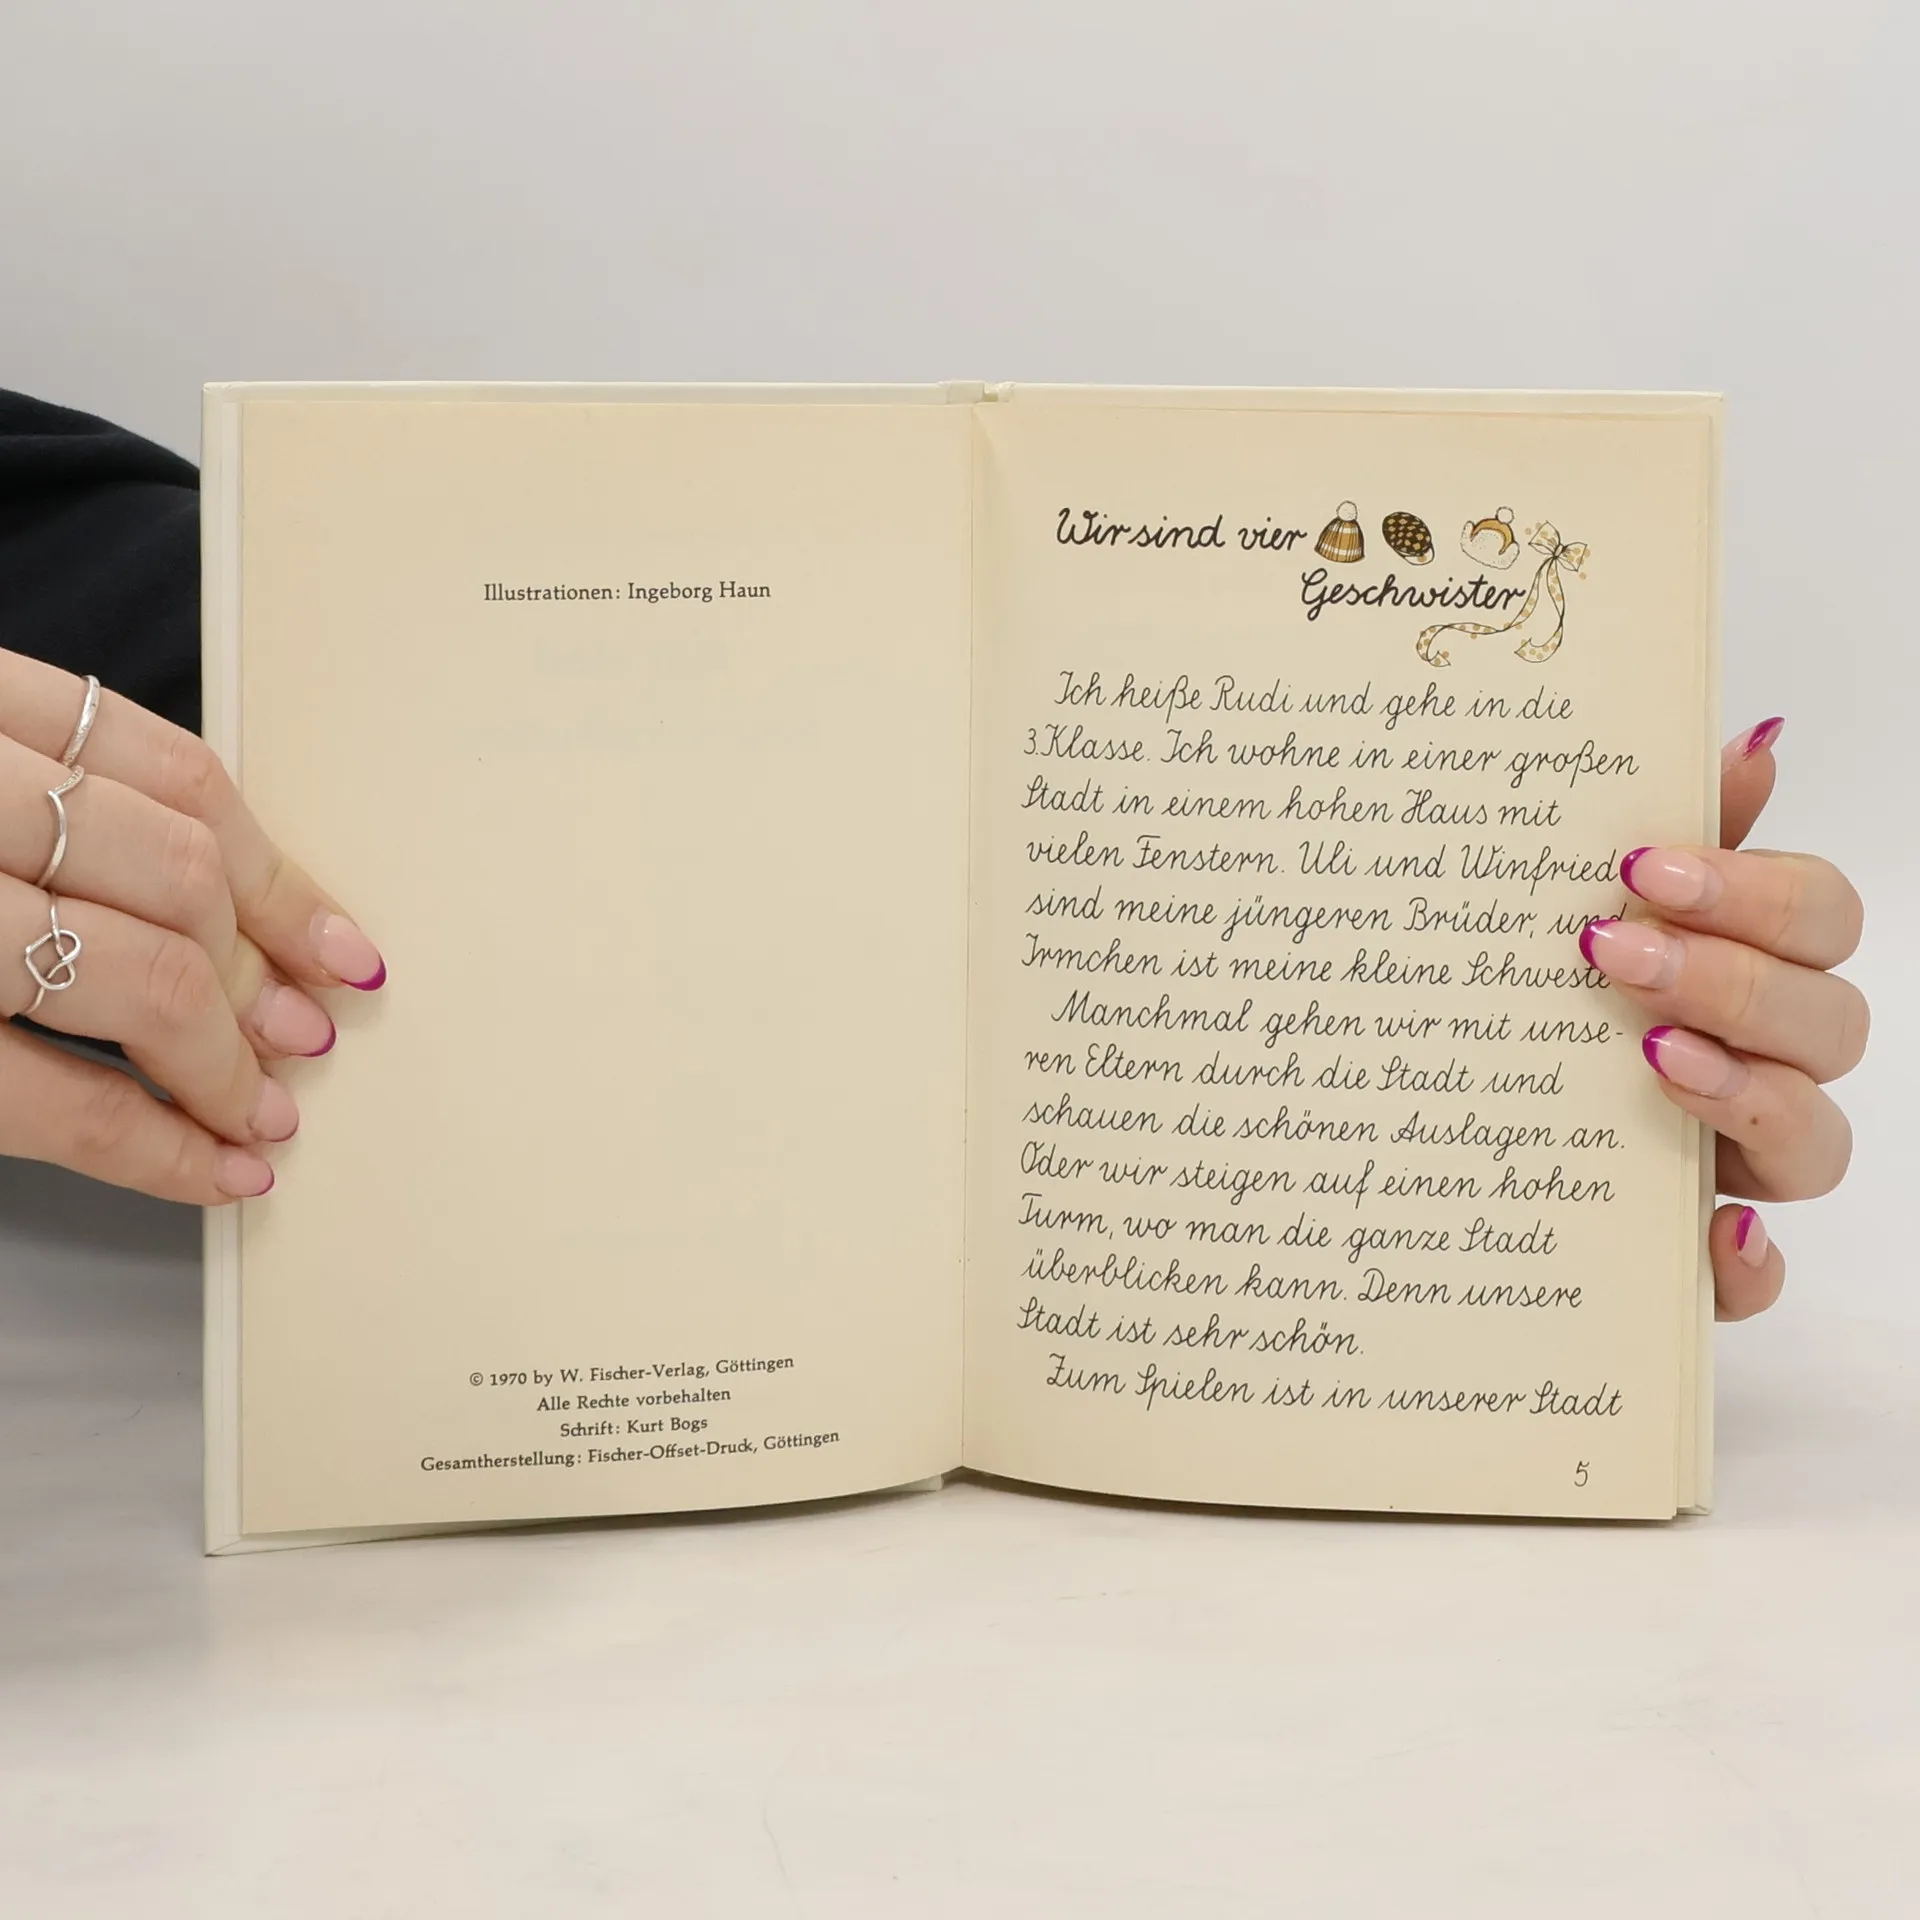 Illustrationen: Ingeborg Haun
© 1970 by W. Fischer-Verlag, Göttingen
Alle Rechte vorbehalten
Schrift: Kurt Bogs
Gesamtherstellung: Fischer-Offset-Druck, Göttingen
Wir sind vier
Geschwister
Ich heiße Rudi und gehe in die
3. Klasse. Ich wohne in einer großen
Stadt in einem hohen Haus mit
vielen Fenstern. Uli und Winfried
sind meine jüngeren Brüder, und
Irmchen ist meine kleine Schweste
Manchmal gehen wir mit unse-
ren Eltern durch die Stadt und
schauen die schönen Auslagen an.
Oder wir steigen auf einen hohen
Turm, wo man die ganze Stadt
überblicken kann. Denn unsere
Stadt ist sehr schön.
Zum Spielen ist in unserer Stadt
5